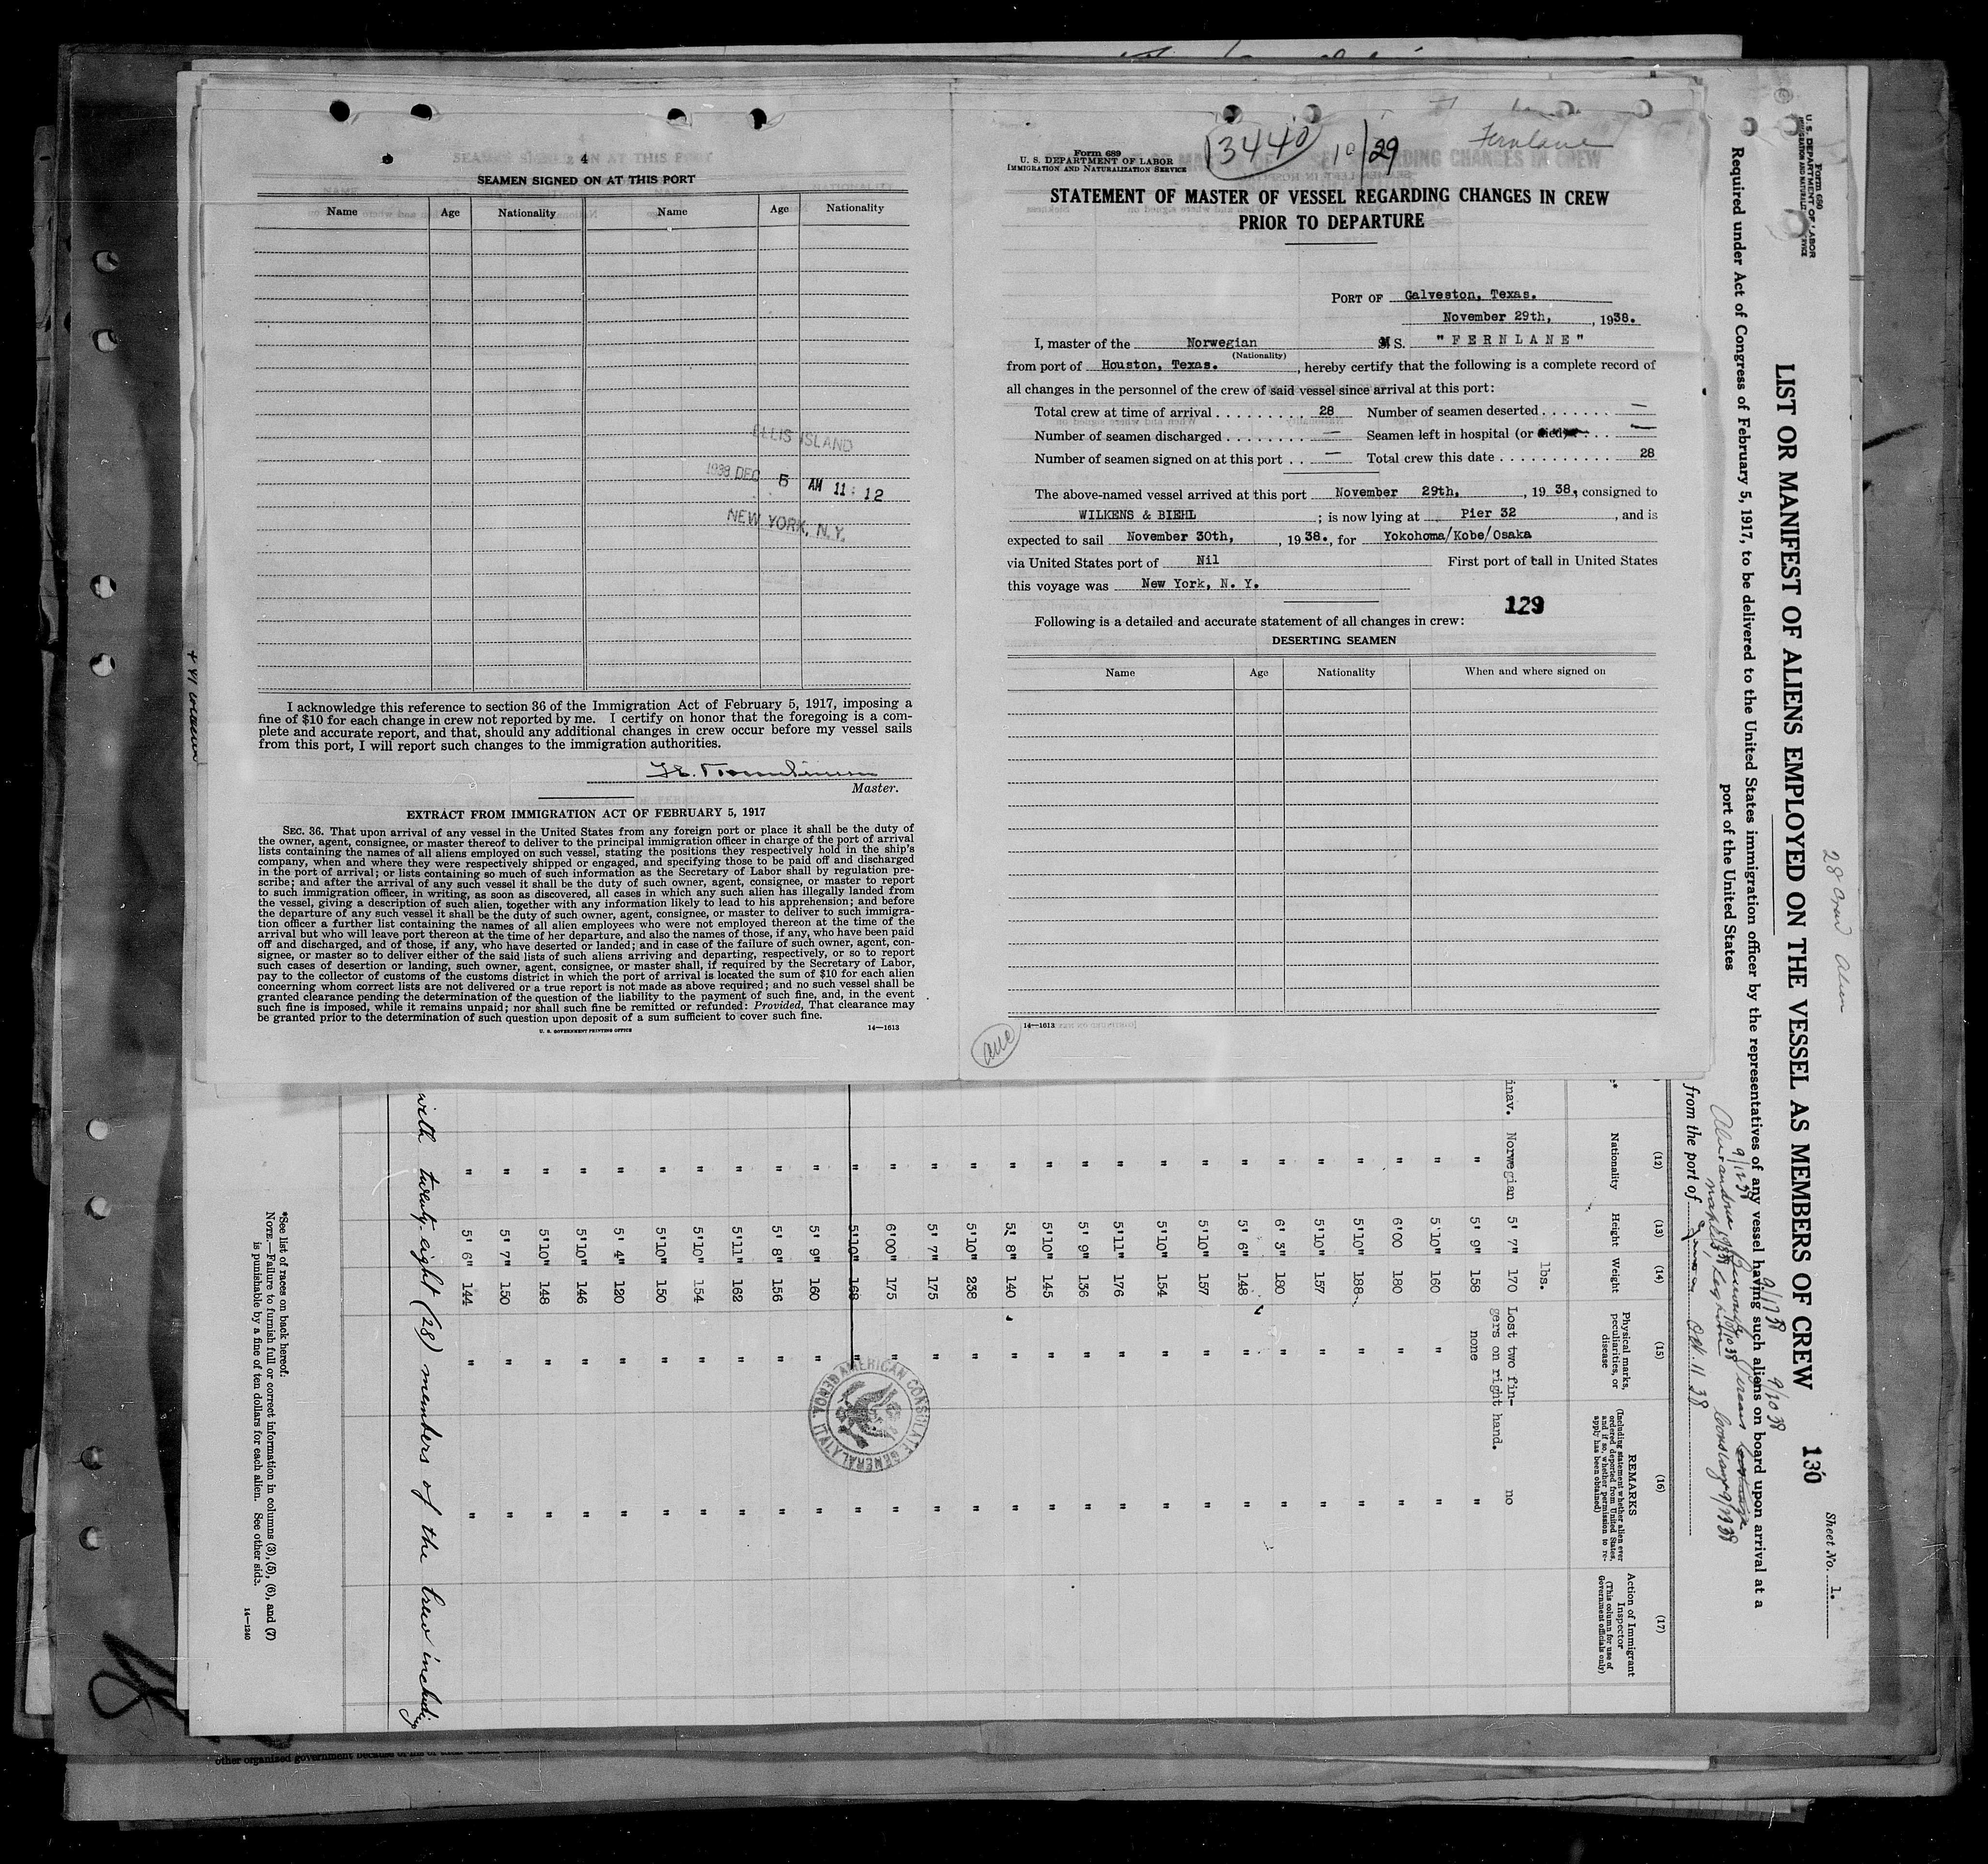 4
SEAMEN SIGNED ON AT THIS PORT
Name Age Nationality Name Age Nationality
ELLIS ISLAND
1938 DEC 5 AM 11:12
NEW YORK, N. Y.
I acknowledge this reference to section 36 of the Immigration Act of February 5, 1917, imposing a
fine of $10 for each change in crew not reported by me. I certify on honor that the foregoing is a com-
plete and accurate report, and that, should any additional changes in crew occur before my vessel sails
from this port, I will report such changes to the immigration authorities.
Master.
EXTRACT FROM IMMIGRATION ACT OF FEBRUARY 5, 1917
SEC. 36. That upon arrival of any vessel in the United States from any foreign port or place it shall be the duty of
the owner, agent, consignee, or master thereof to deliver to the principal immigration officer in charge of the port of arrival
lists containing the names of all aliens employed on such vessel, stating the positions they respectively hold in the ship's
company, when and where they were respectively shipped or engaged, and specifying those to be paid off and discharged
in the port of arrival; or lists containing so much of such information as the Secretary of Labor shall by regulation pre-
scribe; and after the arrival of any such vessel it shall be the duty of such owner, agent, consignee, or master to report
to such immigration officer, in writing, as soon as discovered, all cases in which any such alien has illegally landed from
the vessel, giving a description of such alien, together with any information likely to lead to his apprehension; and before
the departure of any such vessel it shall be the duty of such owner, agent, consignee, or master to deliver to such immigra-
tion officer a further list containing the names of all alien employees who were not employed thereon at the time of the
arrival but who will leave port thereon at the time of her departure, and also the names of those, if any, who have been paid
off and discharged, and of those, if any, who have deserted or landed; and in case of the failure of such owner, agent, con-
signee, or master so to deliver either of the said lists of such aliens arriving and departing, respectively, or so to report
such cases of desertion or landing, such owner, agent, consignee, or master shall, if required by the Secretary of Labor,
pay to the collector of customs of the customs district in which the port of arrival is located the sum of $10 for each alien
concerning whom correct lists are not delivered or a true report is not made as above required; and no such vessel shall be
granted clearance pending the determination of the question of the liability to the payment of such fine, and, in the event
such fine is imposed, while it remains unpaid; nor shall such fine be remitted or refunded: Provided, That clearance may
be granted prior to the determination of such question upon deposit of a sum sufficient to cover such fine.
U. S. GOVERNMENT PRINTING OFFICE 14—1613
Form 689
U. S. DEPARTMENT OF LABOR
IMMIGRATION AND NATURALIZATION SERVICE
3440 10/29 Fernlane
STATEMENT OF MASTER OF VESSEL REGARDING CHANGES IN CREW
PRIOR TO DEPARTURE
PORT OF Galveston, Texas.
November 29th, , 1938.
I, master of the Norwegian M S. "FERNLANE"
(Nationality)
from port of Houston, Texas. , hereby certify that the following is a complete record of
all changes in the personnel of the crew of said vessel since arrival at this port:
Total crew at time of arrival 28 Number of seamen deserted —
Number of seamen discharged — Seamen left in hospital (or died) —
Number of seamen signed on at this port — Total crew this date 28
The above-named vessel arrived at this port November 29th, , 1938, consigned to
WILKENS & BIEHL ; is now lying at Pier 32 , and is
expected to sail November 30th, , 1938., for Yokohoma/Kobe/Osaka
via United States port of Nil First port of call in United States
this voyage was New York, N. Y.
129
Following is a detailed and accurate statement of all changes in crew:
DESERTING SEAMEN
Name Age Nationality When and where signed on
14—1613
Form 680
U. S. DEPARTMENT OF LABOR
Sheet No. 1.
28 Crew Alien
LIST OR MANIFEST OF ALIENS EMPLOYED ON THE VESSEL AS MEMBERS OF CREW 130
Required under Act of Congress of February 5, 1917, to be delivered to the United States immigration officer by the representatives of any vessel having such aliens on board upon arrival at a
port of the United States
9/12 38 9/17 38 9/20 38
from the port of Oct. 11 38
(12) (13) (14) (15) (16) (17)
Nationality Height Weight Physical marks, peculiarities, or disease REMARKS (Including statement whether alien ever ordered deported from United States, and if so, whether permission to reapply has been obtained) Action of Immigrant Inspector (This column for use of Government officials only)
lbs.
inav. Norwegian 5' 7" 170 Lost two fin- no
gers on right hand.
" 5' 9" 158 none "
" 5'10" 160 " "
" 6'00 180 " "
" 5'10" 188 " "
" 5'10" 157 " "
" 6' 3" 180 " "
" 5' 6" 148 " "
" 5'10" 157 " "
" 5'10" 154 " "
" 5'11" 176 " "
" 5' 9" 136 " "
" 5'10" 145 " "
" 5' 8" 140 " "
" 5'10" 238 " "
" 5' 7" 175 " "
" 6'00" 175 " "
" 5'10" 168 " "
" 5' 9" 160 " "
" 5' 8" 156 " "
" 5'11" 162 " "
" 5'10" 154 " "
" 5'10" 150 " "
" 5' 4" 120 " "
" 5'10" 146 " "
" 5'10" 148 " "
" 5' 7" 150 " "
" 5' 6" 144 " "
AMERICAN CONSULATE GENERAL
with twenty-eight (28) members of the crew including
*See list of races on back hereof.
NOTE.—Failure to furnish full or correct information in columns (3), (5), (6), and (7)
is punishable by a fine of ten dollars for each alien. See other side.
14—1240
other organized government because of his or